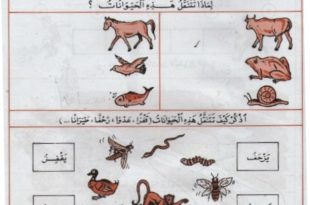 لِمَاذَا تَتَنَقَّلُ هَذِهِ الْحَيَوَانَاتُ ؟
اُذْكُرْ كَيْفَ تَتَنَقَّلُ هَذِهِ الْحَيَوَانَاتُ (قَفْزًا، عَدْوًا، زَحْفًا، طَيَرَانًا ...)
يَقْفِزُ
يَزْحَفُ